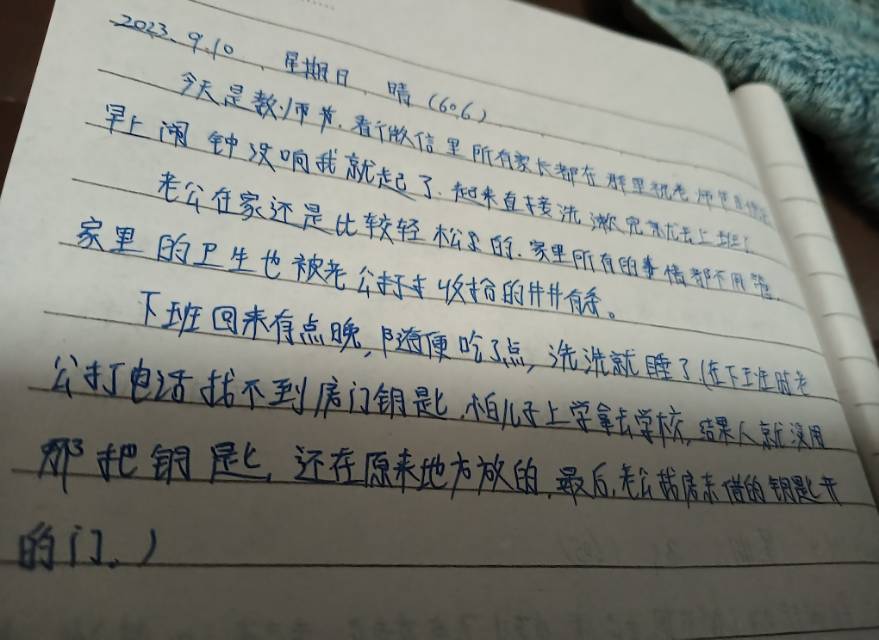 2023.9.10、星期日、晴(606)
今天是教师节.看了微信里所有家长都在群里祝老师节日
早上闹钟没响我就起了.起来直接洗漱完就去上班了
老公在家还是比较轻松的.家里所有的事情都不用管.
家里的卫生也被老公打扫收拾的井井有条。
下班回来有点晚,随便吃了点,洗洗就睡了.(在下班时老
公打电话找不到房门钥匙.怕儿子上学拿去学校,结果人就没用
那把钥匙,还在原来地方放的.最后,老公找房东借的钥匙开
的门。)